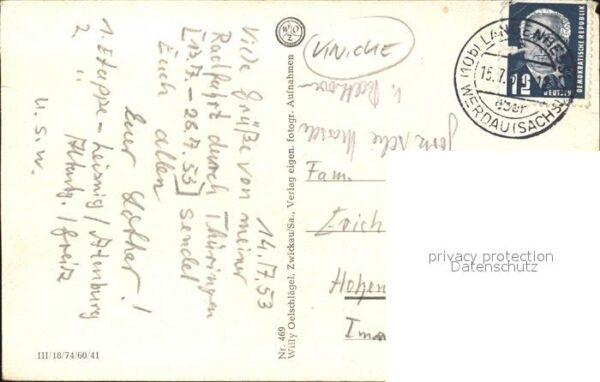 14./7.53
Viele Grüße von meiner
Radfahrt durch Thüringen
[13.7. – 26.7.53] sendet
Euch allen
Euer Lothar!
1. Etappe – Leisnig / Altenburg
2. " Altenbg. / Greiz
u. s. w.
III/18/74/60/41
Nr. 469
Willy Oelschlägel, Zwickau/Sa., Verlag eigen. fotogr. Aufnahmen
Fam.
Erich
Hohen
(10b)
15.7.
über
WERDAU (SACHS)
12
DEUTSCHE
DEMOKRATISCHE REPUBLIK
privacy protection
Datenschutz